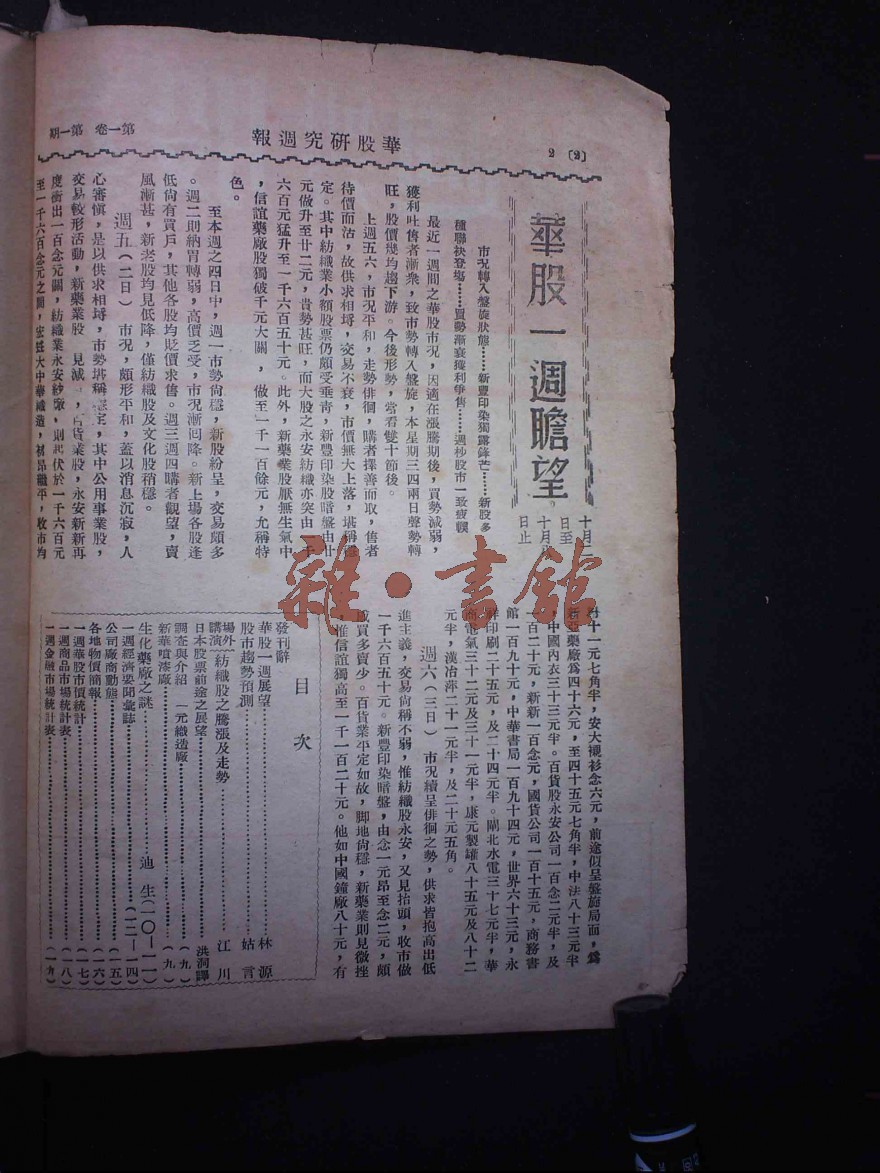 2 〔2〕
華股研究週報
第一卷 第一期
華股一週瞻望
日至
十月
日止
市況轉入盤旋狀態……新豐印染獨露鋒芒……新股多
種聯袂登場……買勢漸衰獲利爭售……週杪股市一致疲軟
最近一週間之華股市況，因適在漲騰期後，買勢減弱，
獲利吐售者漸衆，致市勢轉入盤旋，本星期三四兩日聲勢轉
旺，股價幾均趨下游。今後形勢，當看雙十節後。
上週五六，市況平和，走勢徘徊，購者擇善而取，售者
待價而沽，故供求相埒，交易不衰，市價無大上落，堪稱穩
定。其中紡織業小額股票仍頗受垂青，新豐印染股暗盤由廿
元做升至廿二元，貴勢甚旺，而大股之永安紡織亦突由一千
六百元猛升至一千六百五十元。此外，新藥業股厭無生氣中
，信誼藥廠股獨破千元大關，做至一千一百餘元，允稱特
色。
至本週之四日中，週一市勢尙穩，新股紛呈，交易頗多
。週二則納胃轉弱，高價乏受，市況漸回降。新上場各股逢
低尙有買戶，其他各股均貶價求售。週三週四購者觀望，賣
風漸甚，新老股均見低降，僅紡織股及文化股稍穩。
週五（二日） 市況，頗形平和，蓋以消息沉寂，人
心審愼，是以供求相埒，市勢堪稱穩定，其中公用事業股，
交易較形活動，新藥業股見減，百貨業股，永安新新再
度衝出一百念元關，紡織業永安紗廠，則起伏於一千六百元
至一千六百念元之間，大中華織造，初昂繼平，收市均
對十一元七角半，安大襯衫念六元，前途似呈盤旋局面，爲
新亞藥廠爲四十六元，至四十五元七角半，中法八十三元半
，中國內衣三十三元半。百貨股永安公司一百念二元半，及
一百二十元，新新一百念元，國貨公司一百十五元，商務書
館一百九十元，中華書局一百九十四元，世界六十三元，永
祥印刷二十五元，及二十四元半。閘北水電三十七元半，華
商電氣三十二元及三十一元半，康元製罐八十五元及八十二
元半，漢冶萍二十一元半，及二十元五角。
週六（三日） 市況續呈徘徊之勢，供求皆抱高出低
進主義，交易尙稱不弱，惟紡織股永安，又見抬頭，收市做
一千六百五十元。新豐印染暗盤，由念一元昂至念二元，頗
成買多賣少。百貨業平定如故，脚地尙穩，新藥業則見微挫
，惟信誼獨高至一千一百二十元。他如中國鐘廠八十元，有
目次
發刊辭
華股一週展望……林源
股市趨勢預測……姑言
場外講演 紡織股之騰漲及走勢……江川
日本股票前途之展望……洪洞譯
調查與介紹 一元織造廠……（九）
新華噴漆廠……（九）
生化藥廠之謎……迪生（一〇—一一）
一週經濟要聞彙誌……（一二—一四）
公司廠商動態……（一五）
各地物價簡報……（一六）
一週華股市價統計……（一七）
一週商品市場統計表……（一八）
一週金融市場統計表……（一九）
雜·書館